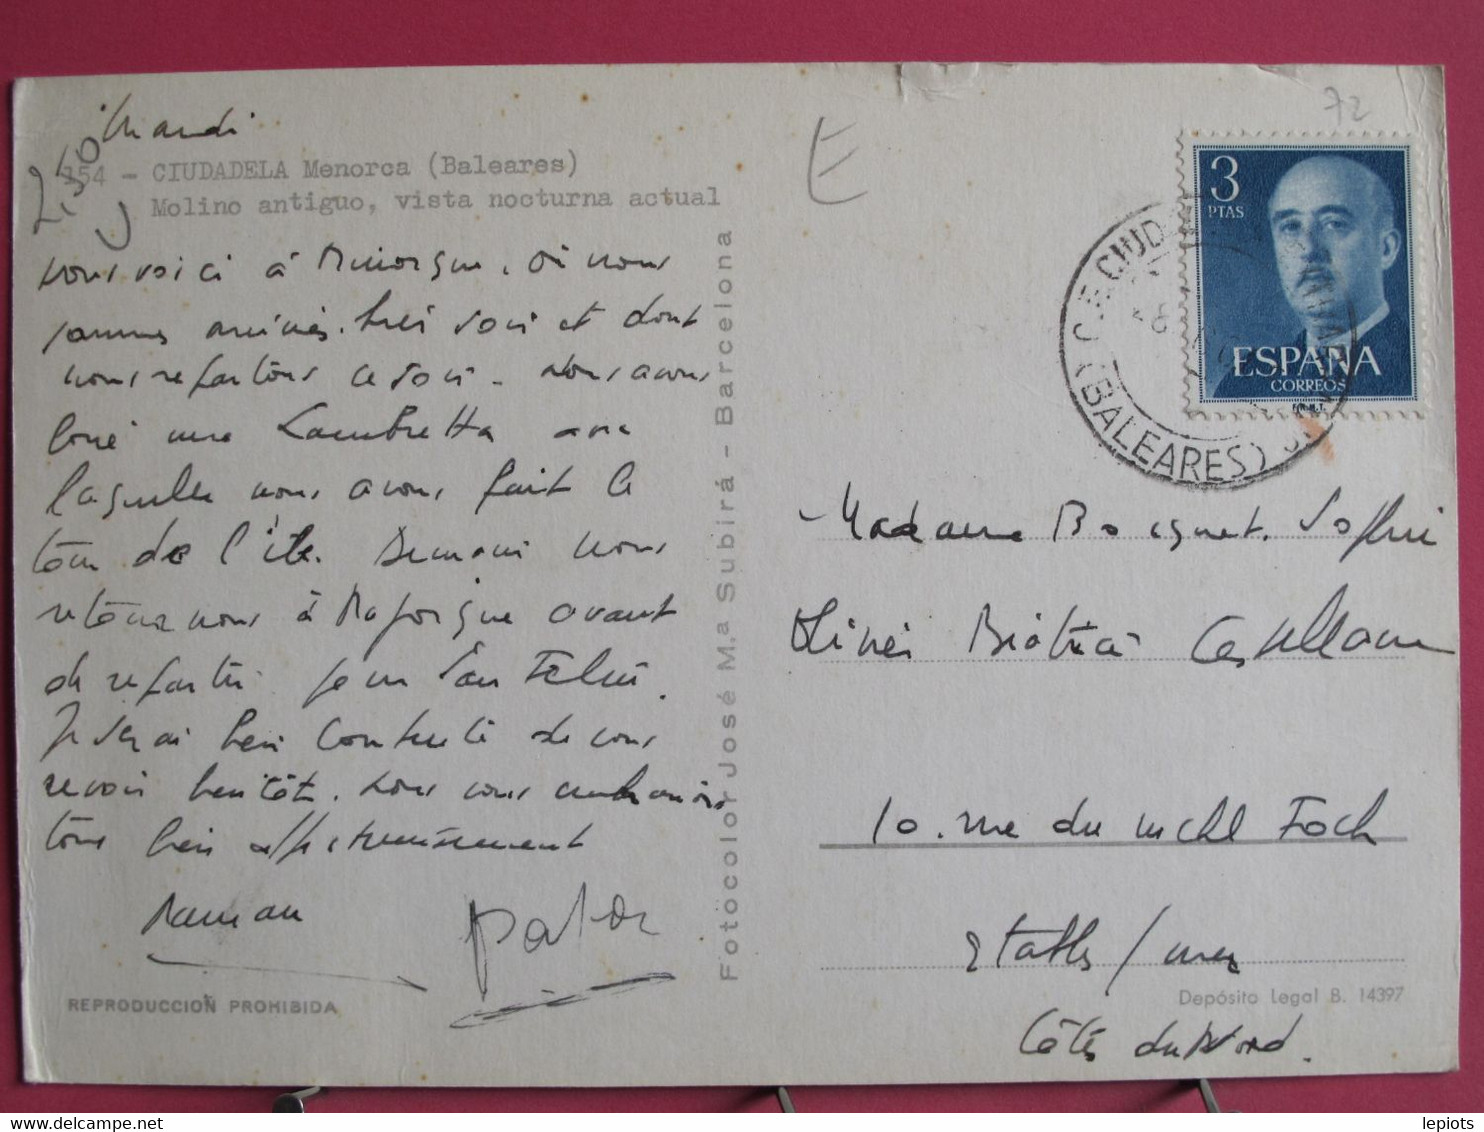 Mardi
2,50
354 - CIUDADELA Menorca (Baleares)
Molino antiguo, vista nocturna actual
nous voici à Minorque, où nous
sommes arrivés hier soir et dont
nous repartons ce soir. Nous avons
loué une Lambretta avec
laquelle nous avons fait le
tour de l'île. Demain nous
retournons à Majorque avant
de repartir pour San Feliu.
Je serai bien contente de vous
revoir bientôt. Nous vous embrassons
tous bien affectueusement
Maman
REPRODUCCION PROHIBIDA
Fotocolor José M.a Subirá - Barcelona
E
72
3
PTAS
ESPAÑA
CORREOS
(BALEARES)
Madame Bocquet. Sophie
Béatrice Castellane
10. rue du Mchl Foch
Etables / mer
Depósito Legal B. 14397
Côtes du Nord.
lepiots